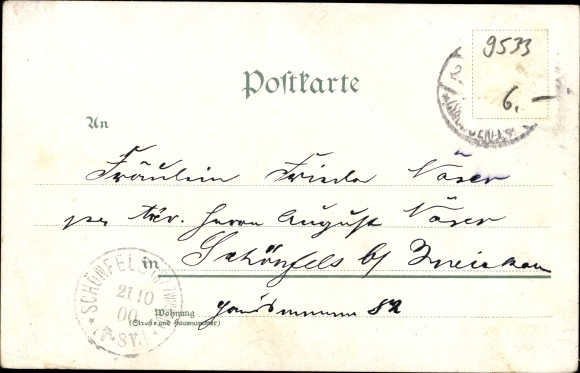 9533
6.—
Postkarte
An
Fräulein Frieda Näser
per Adr. Herrn August Näser
in Schönfels b/ Zwickau
SCHÖNFELS
21 10
00
Wohnung
(Straße und Hausnummer)
Hausnummer 82